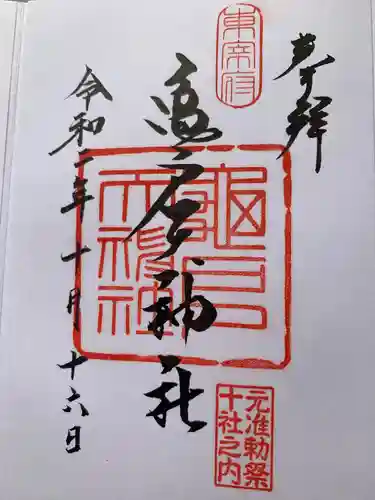 奉拝
東宰府
亀戸天神社
亀戸天神社
元准勅祭
十社之内
令和二年十月十六日